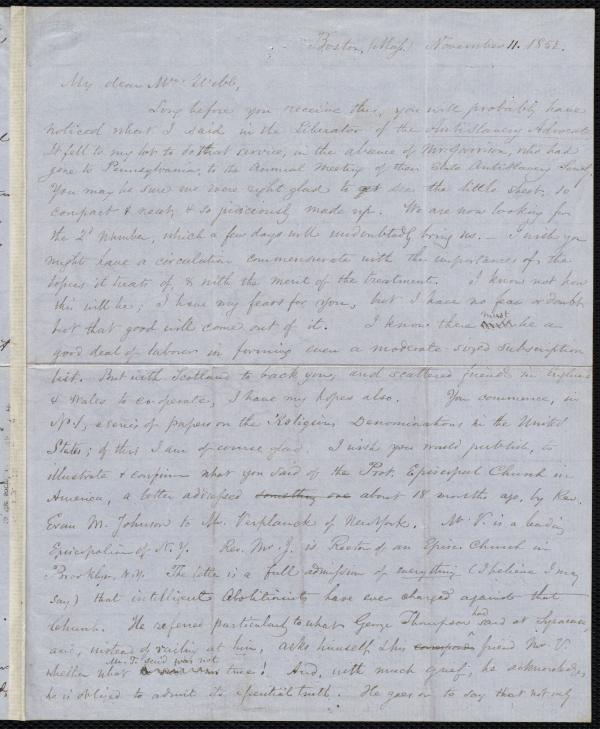 Boston, (Mass.) November 11. 1852.
My dear Mr. Webb,
Long before you receive this, you will probably have
noticed what I said in the Liberator of the Antislavery Advocate.
It fell to my lot to do that service, in the absence of Mr Garrison, who had
gone to Pennsylvania, to the Annual Meeting of their State Antislavery Socy.
You may be sure we were right glad to get see the little sheet, so
compact & neat, & so judiciously made up. We are now looking for
the 2d number, which a few days will undoubtedly bring us. – I wish you
might have a circulation commensurate with the importance of the
topics it treats of, & with the merit of the treatment. I know not how
this will be; I have my fears for you, but I have no fear or doubt
but that good will come out of it. I know there must be a
good deal of labour in forming even a moderate sized subscription
list. But with Scotland to back you, and scattered friends in England
& Wales to co-operate, I have my hopes also. You commence, in
No 1, a series of papers on the Religious Denominations in the United
States; of this I am of course glad. I wish you would publish, to
illustrate & confirm what you said of the Prot. Episcopal Church in
America, a letter addressed something one about 18 months ago, by Rev.
Evan M. Johnson to Mr. Verplanck of New York. Mr V. is a leading
Episcopalian of N.Y. Rev. Mr. J. is Rector of an Episc. Church in
Brooklyn, N.Y. The letter is a full admission of everything (I believe I may
say) that intelligent Abolitionists have ever charged against that
Church. He referred particularly to what George Thompson had said at Syracuse,
and, instead of railing at him, asks himself & his friend Mr V.
whether what Mr. T. said was not true! And, with much grief, he acknowledges
he is obliged to admit its essential truth. He goes on to say that not only